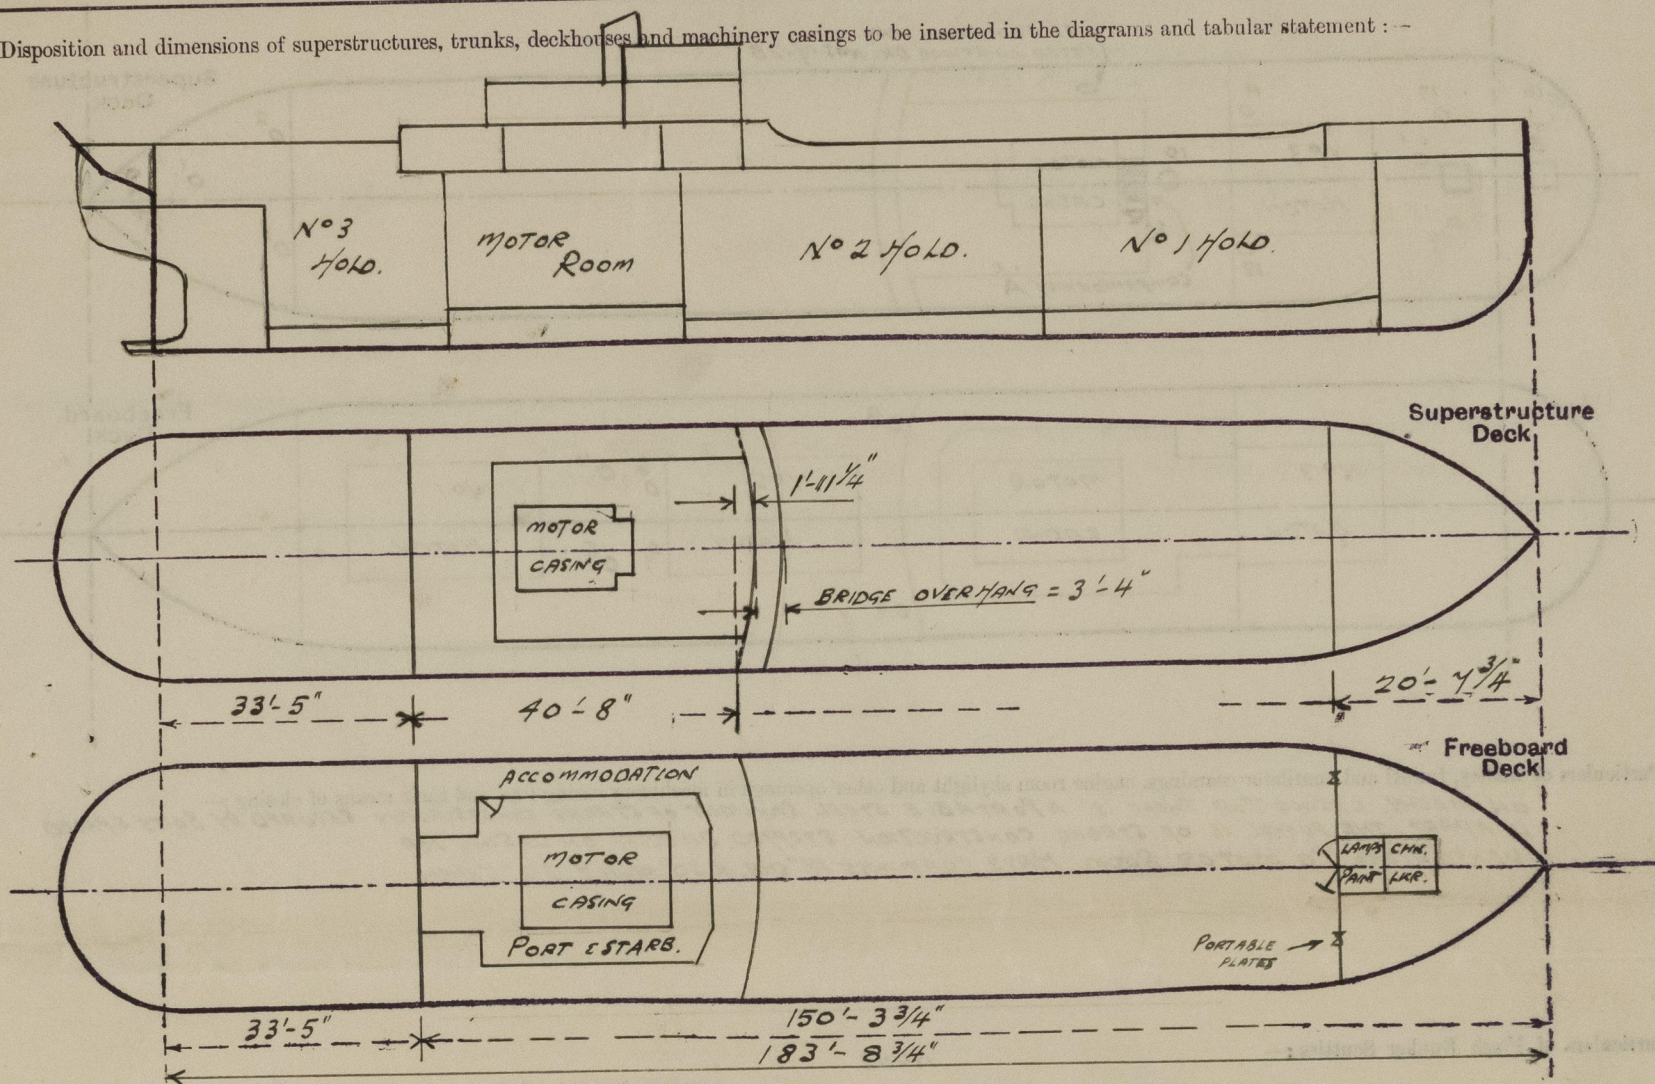 Disposition and dimensions of superstructures, trunks, deckhouses and machinery casings to be inserted in the diagrams and tabular statement : —
Nº 3
HOLD.
MOTOR
ROOM
Nº 2 HOLD.
Nº 1 HOLD.
Superstructure
Deck
1'-11 1/4"
MOTOR
CASING
BRIDGE OVERHANG = 3'-4"
33'-5"
40'-8"
20'-7 3/4"
Freeboard
Deck
ACCOMMODATION
MOTOR
CASING
PORT & STARB.
LAMPS CHN.
PAINT LKR.
PORTABLE
PLATES
33'-5"
150'-3 3/4"
183'-8 3/4"